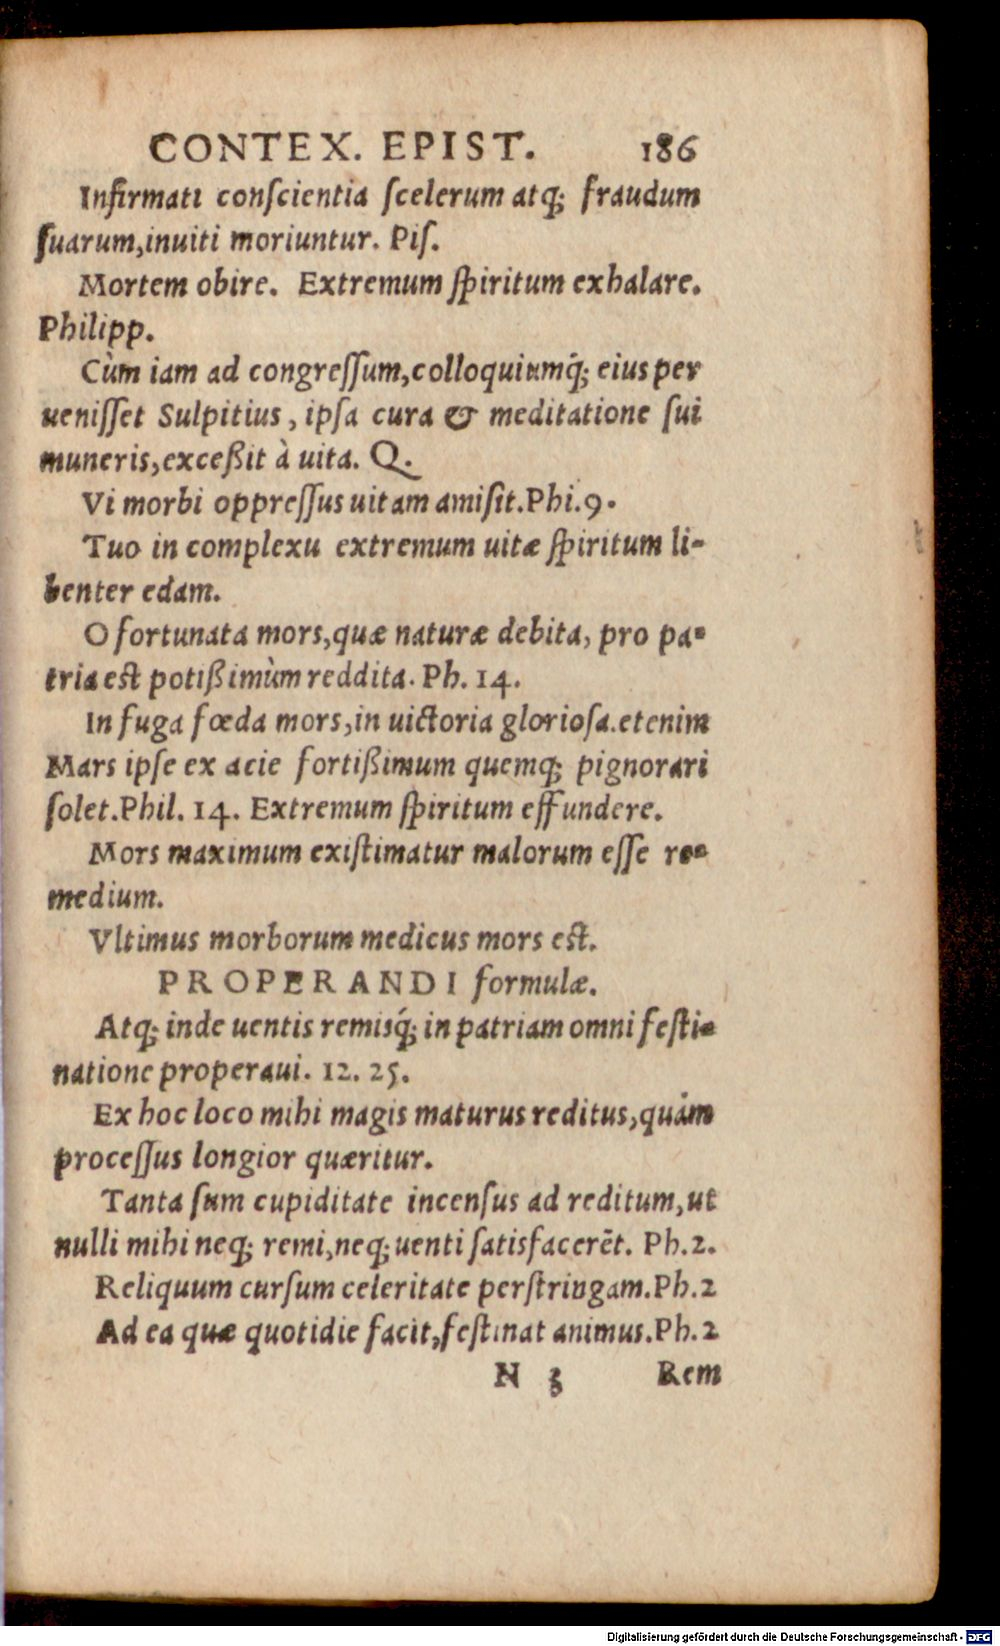 CONTEX. EPIST. 186
Infirmati conſcientia ſcelerum atq́; fraudum
ſuarum,inuiti moriuntur. Piſ.
Mortem obire. Extremum ſpiritum exhalare.
Philipp.
Cùm iam ad congreſſum,colloquiumq́; eius per
ueniſſet Sulpitius, ipſa cura & meditatione ſui
muneris,exceßit à uita. Q.
Vi morbi oppreſſus uitam amiſit.Phi.9.
Tuo in complexu extremum uitæ ſpiritum li-
benter edam.
O fortunata mors,quæ naturæ debita, pro pa-
tria est potißimùm reddita. Ph. 14.
In fuga fœda mors,in uictoria glorioſa.etenim
Mars ipſe ex acie fortißimum quemq; pignorari
ſolet.Phil. 14. Extremum ſpiritum effundere.
Mors maximum exiſtimatur malorum eſſe re-
medium.
Vltimus morborum medicus mors eſt.
PROPERANDI formulæ.
Atq; inde uentis remisq́; in patriam omni feſti-
natione properaui. 12. 25.
Ex hoc loco mihi magis maturus reditus,quàm
proceſſus longior quæritur.
Tanta ſum cupiditate incenſus ad reditum,ut
nulli mihi neq; remi,neq; uenti ſatisfacerēt. Ph.2.
Reliquum curſum celeritate perſtringam.Ph.2
Ad ea quæ quotidie facit,feſtinat animus.Ph.2
N 3 Rem
Digitalisierung gefördert durch die Deutsche Forschungsgemeinschaft - DFG